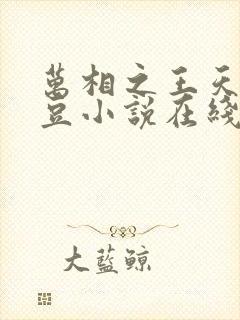 萬相之王天
豆小說在綫
大藍鯨